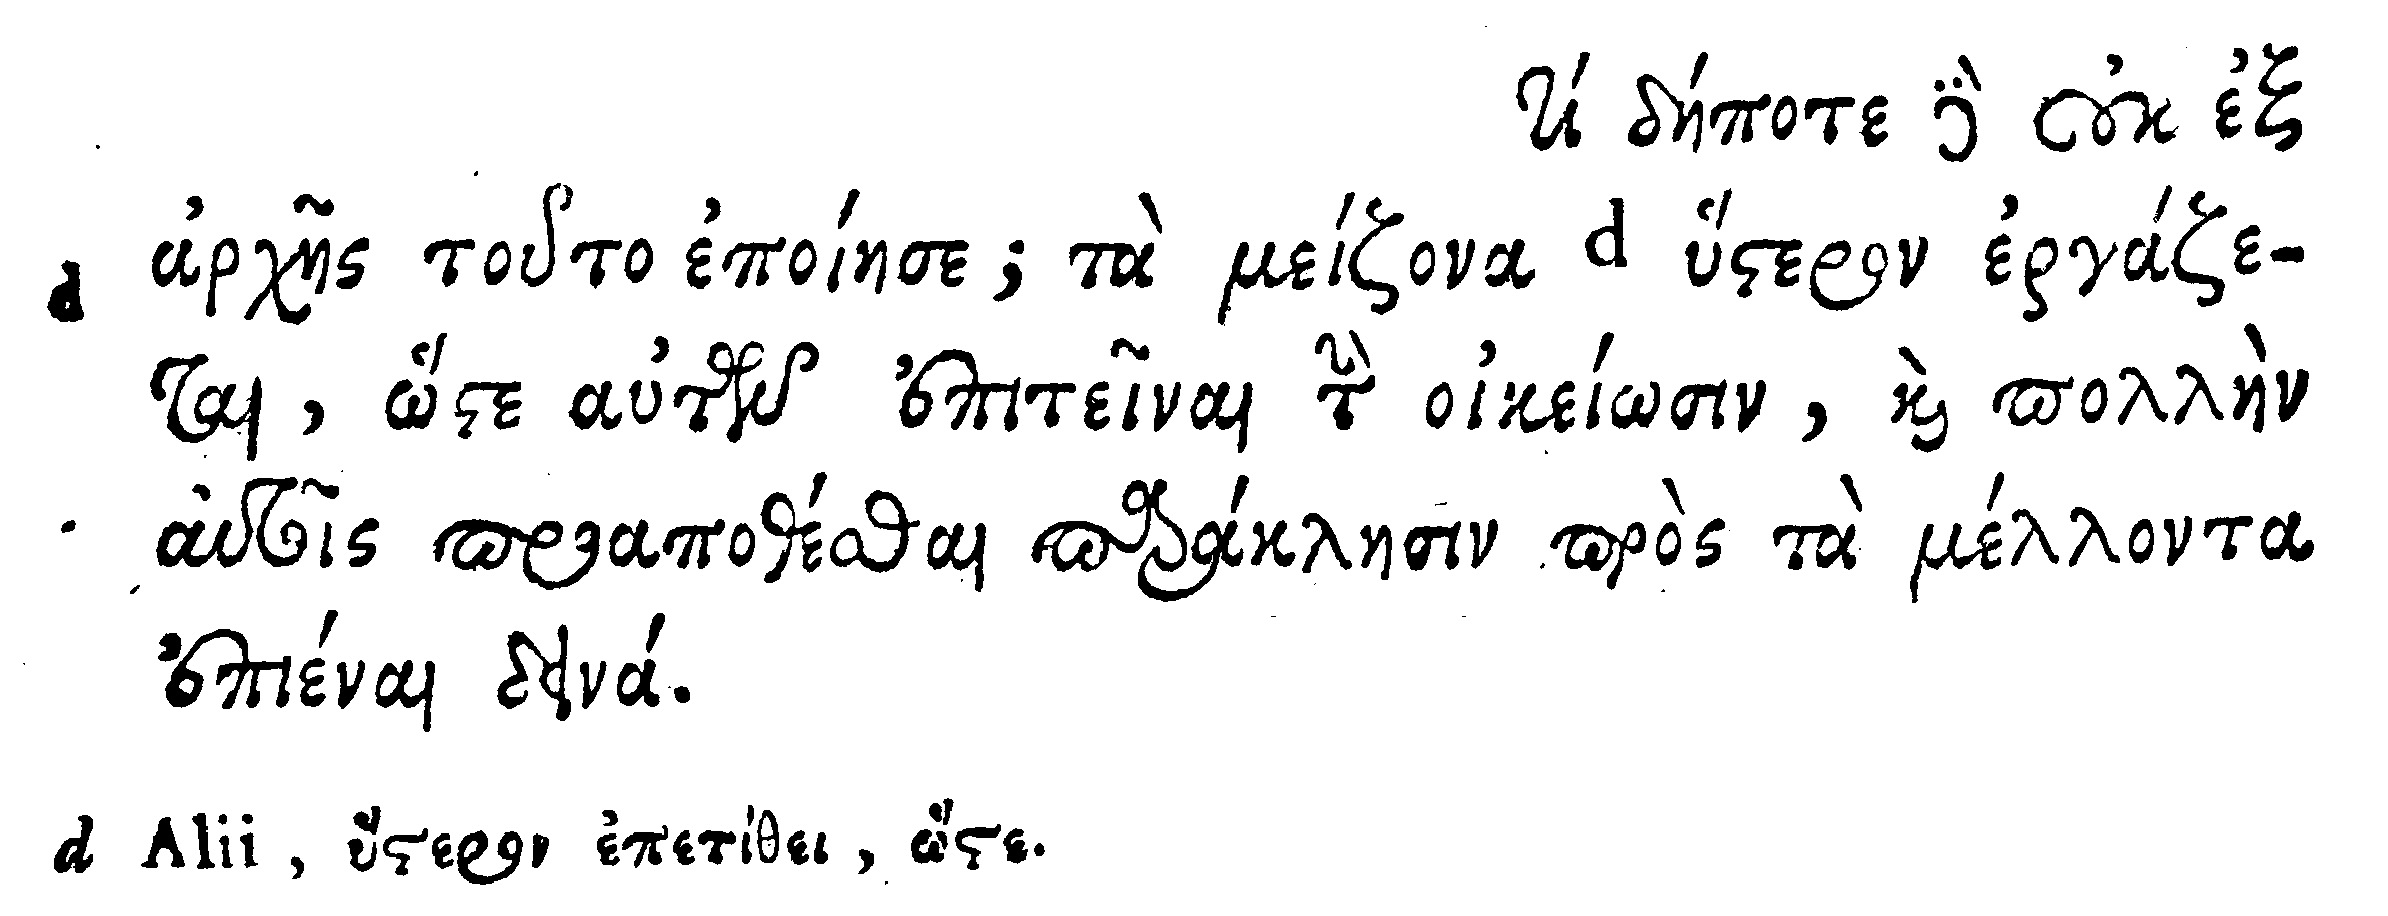 Τί δήποτε δὲ οὐκ ἐξ
ἀρχῆς τοῦτο ἐποίησε; τὰ μείζονα d ὕστερον ἐργάζε-
d
ται, ὥστε αὐτῶν ἐπιτεῖναι τὴν οἰκείωσιν, καὶ πολλὴν
αὐτοῖς προαποθέσθαι παράκλησιν πρὸς τὰ μέλλοντα
ἐπιέναι δεινά.
d Alii, ὕστερον ἐπετίθει, ὥστε.